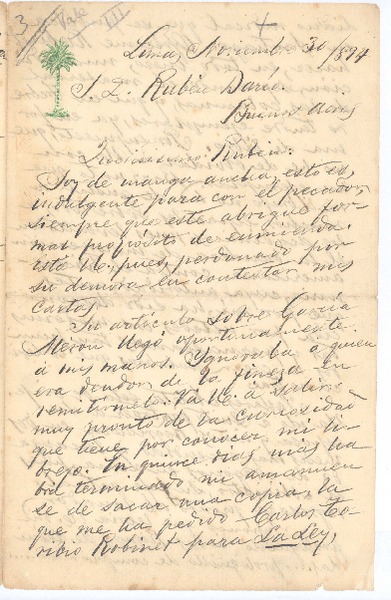 3 Vale III
Lima, Noviembre 30/894
S. D. Rubén Darío.
Buenos Aires
Queridísimo Rubén:
Soy de manga ancha, esto es,
indulgente para con el pecador,
siempre que este abrigue for-
mal propósito de enmienda.
Está U. pues, perdonado por
su demora en contestar mis
cartas.
Su artículo sobre García
Merou llegó oportunamente
á mis manos. Ignoraba á quien
era deudor de la fineza en
remitírmelo. Va U. á salir
muy pronto de la curiosidad
que tiene por conocer mi li-
brejo. En quince dias mas ha-
brá terminado mi amanuen
se de sacar una copia, la
que me ha pedido Carlos To-
ribio Robinet para La Ley,